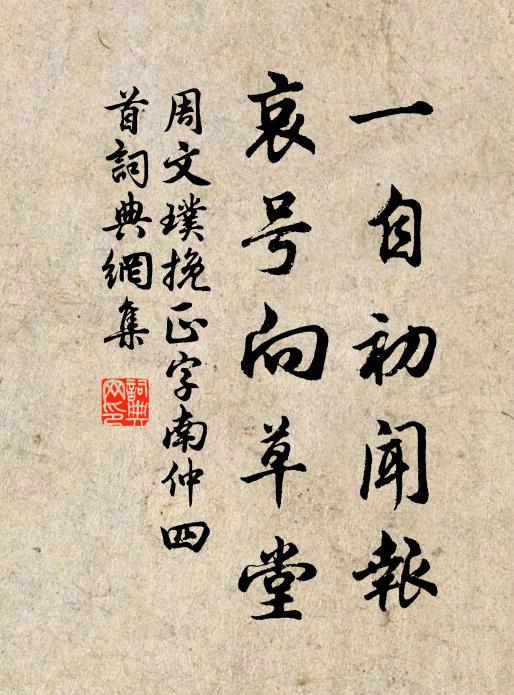 一自初闻報
哀号向草堂
周文璞挽正字南仲四
首詞典網集
詞典
网印